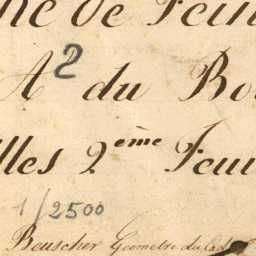 de Feui
A2 du Bo
lles 2ème Feui
1/2500
Beuscher Géomètre du Cad